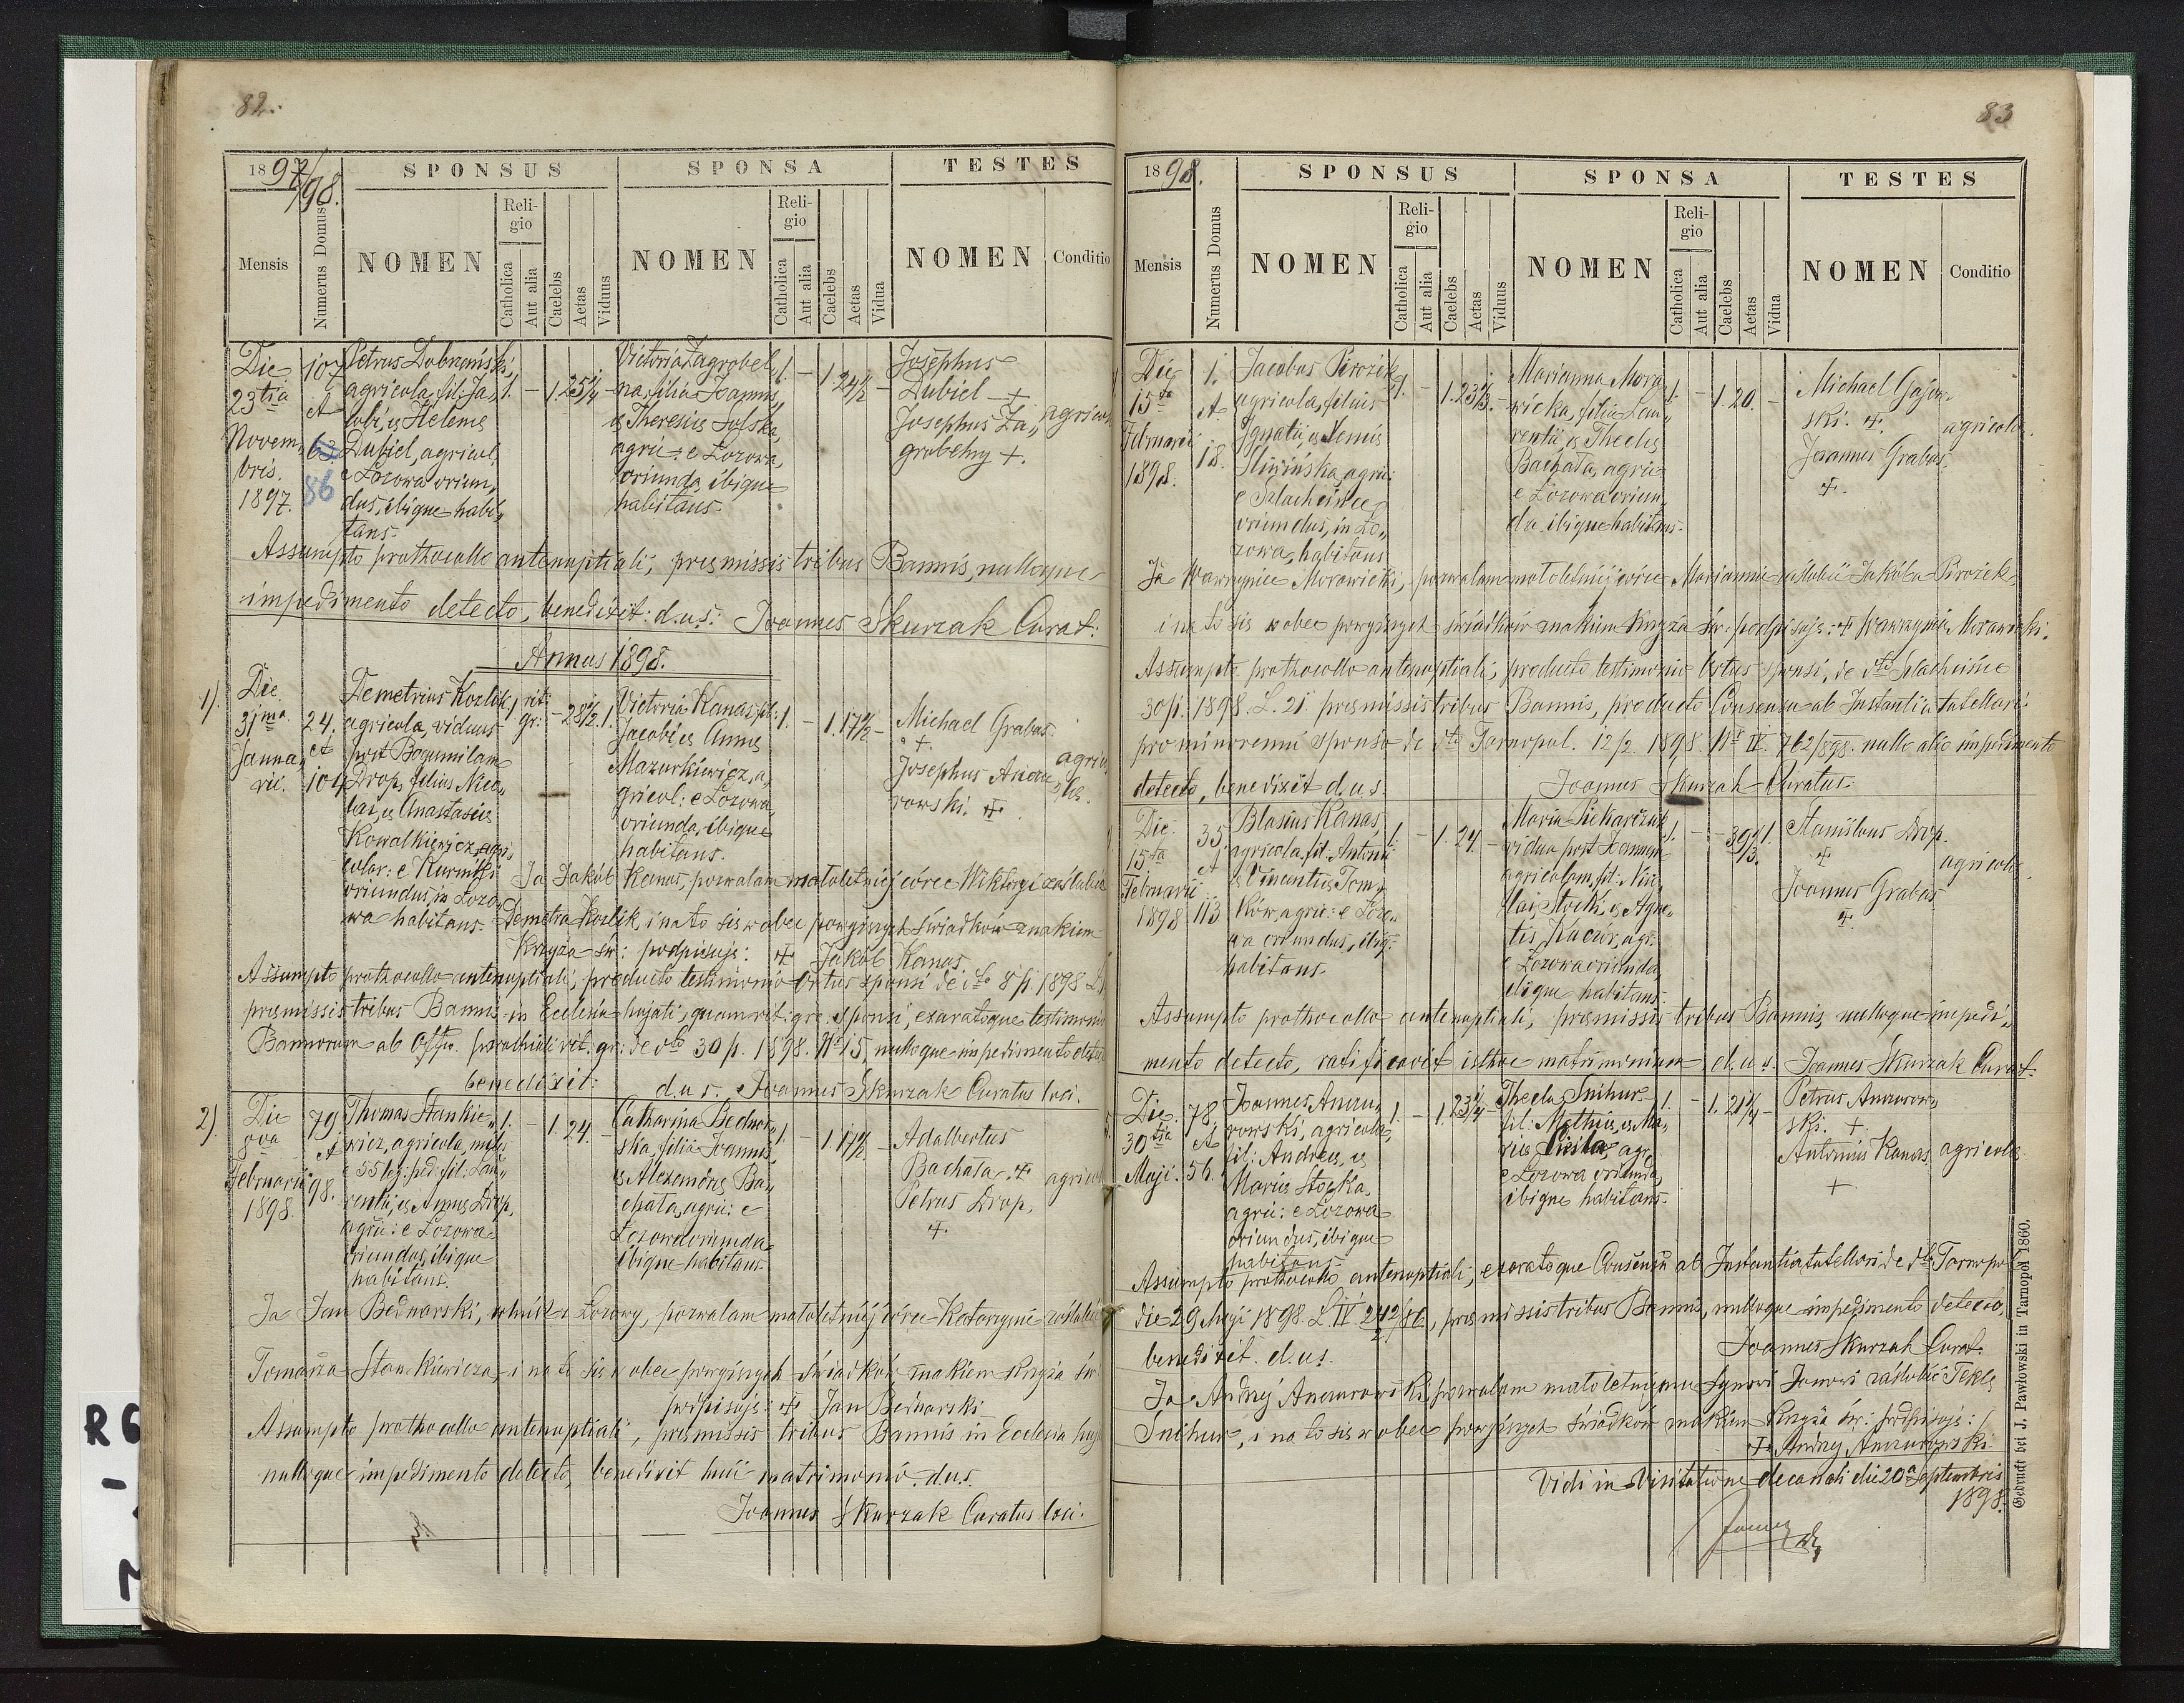 82.
1897/98.
SPONSUS
SPONSA
TESTES
Mensis
Numerus Domus
NOMEN
Religio
Catholica
Aut alia
Caelebs
Aetas
Viduus
NOMEN
Religio
Catholica
Aut alia
Caelebs
Aetas
Vidua
NOMEN
Conditio
Die
23tia
Novem„
bris.
1897.
107
et
63
86
Petrus Dobrzański,
agricola, fil: Ja„
cobi, et Helenae
Dubiel, agricol.
e Łozowa oriun„
dus, ibique habi„
tans.
1. – 1. 25 1/4 –
Victoria Zagrobel„
na, filia Joannis,
et Theresiae Solska,
agric: e Łozowa,
oriunda, ibique
habitans.
1. – 1. 24 1/2 –
Josephus
Dubiel +
Josephus Za„
grobelny +.
agricol
Assumpto prothocollo antenuptiali, praemissis tribus Bannis, nulloque
impedimento detecto, benedixit: d.u.s: Joannes Skurzak Curat:
Annus 1898.
1).
Die
31ma
Janua„
rii.
24.
et
104
Demetrius Kozlik,
agricola, viduus
post Bogumilam
Drop, filius Nico„
lai, et Anastasiae
Kowalkiewicz, agri„
color: e Kurniki
oriundus, in Łozo„
wa habitans.
1. rit: gr: – 28 1/2. 1.
Victoria Kanas, fil:
Jacobi et Annae
Mazurkiewicz, a„
gricol: e Łozowa
oriunda, ibique
habitans.
1. – 1. 17 1/2 –
Michael Grabas
+.
Josephus
rowski. +
agrico„
lae.
Ja Jakób Kanas, pozwalam małoletniej córce Wiktoryi zaślubić
Demetra Kozlik, i na to się wobec powyższych świadków znakiem
Krzyża św: podpisuję: + Jakób Kanas
Assumpto prothocollo antenuptiali, producto testimonio ortus sponsi de dto 8/1. 1898
praemissis tribus Bannis in Ecclesia hujati, quam rit: gr: sponsi, exaratoque testimonio
Bannorum ab Offo. parochiali rit: gr: de dto 30/1. 1898. No 15, nulloque impedimento detec
benedixit: d.u.s. Joannes Skurzak Curatus loci.
2).
Die
8va
Februarii
1898.
79.
et
98.
Thomas Stankie„
wicz, agricola, mil:
e 55 leg: ped: fil: Lau„
rentii, et Annae Drop,
agric: e Łozowa
oriundus, ibique
habitans.
1. – 1. 24. –
Catharina Bednar„
ska, filia Joannis
et Alexandrae Ba„
chata, agric: e
Łozowa oriunda
ibique habitans.
1. – 1. 17 1/2 –
Adalbertus
Bachata +
Petrus Drop,
+.
agricol
Ja Jan Bednarski, rolnik z Łozowy, pozwalam małoletniej córce Katarzynie zaślubić
Tomasza Stankiewicza, i na to się wobec powyższych świadków znakiem Krzyża św
podpisuję: + Jan Bednarski
Assumpto prothocollo antenuptiali, praemissis tribus Bannis in Ecclesia huj
nulloque impedimento detecto, benedixit huic matrimonio. d.u.s.
Joannes Skurzak Curatus loci.
83
1898.
SPONSUS
SPONSA
TESTES
Mensis
Numerus Domus
NOMEN
Religio
Catholica
Aut alia
Caelebs
Aetas
Viduus
NOMEN
Religio
Catholica
Aut alia
Caelebs
Aetas
Vidua
NOMEN
Conditio
Die
15ta
Februarii
1898.
1.
et
18.
Jacobus Pirozik
agricola, filius
Ignatii, et Xeniae
Śliwińska, agric:
e Szlachcińce
oriundus, in Ło„
zowa, habitans
1. – 1. 23 1/3. –
Marianna Mora„
wicka, filia Lau„
rentii, et Theclae
Bachata, agric:
e Łozowa oriun„
da, ibique habitans.
1. – 1. 20. –
Michael Gajow„
ski. +.
Joannes Grabas.
+.
agricolae.
Ja Wawrzyniec Morawicki, pozwalam małoletniej córce Mariannie zaślubić Jakóba Pirozek
i na to się wobec powyższych świadków znakiem Krzyża św: podpisuję: + Wawrzyniec Morawicki.
Assumpto prothocollo antenuptiali, producto testimonio ortus sponsi, de dto Szlachcińce
30/1. 1898. L. 21. praemissis tribus Bannis, producto Consensu ab Instantia tutellari
pro minorenni sponsa de dto Tarnopol. 12/2 1898. No IV. 762/898. nullo alio impedimento
detecto, benedixit d.u.s. Joannes Skurzak Curatus.
Die
15ta
Februarii
1898
35.
et
113
Blasius Kanas,
agricola, fil: Antonii
et Vincentiae Tom„
ków, agric: e Łozo„
wa oriundus, ibiq:
habitans.
1. – 1. 24. –
Maria
vidua post Joannem
agricolam, fil: Nico„
lai, Słocki, et Agne„
tis, Kaczór, agr:
e Łozowa oriunda,
ibique habitans.
1. – – 39 1/3. 1.
Stanislaus Drop.
+
Joannes Grabas
+.
agricolae.
Assumpto prothocollo antenuptiali, praemissis tribus Bannis, nulloque impedi„
mento detecto, ratificavit isthoc matrimonium d.u.s. Joannes Skurzak Curat.
Die
30tia
Maji.
78.
et
56.
Joannes Anczu„
rowski, agricola,
fil: Andreae, et
Mariae Słocka,
agric: e Łozowa
oriundus, ibique
habitans.
1. – 1. 23 1/4 –
Thecla Snihur
fil: Mathiae, et Ma„
riae agr:
e Łozowa oriunda
ibique habitans.
1. – 1. 21 1/4 –
Petrus Anczurow„
ski. +.
Antonius Kanas
+
agricolae
Assumpto prothocollo antenuptiali, exaratoque Consensu ab Instantia tutellari de dto Tarnopol
die 29 Maji 1898. L. IV. praemissis tribus Bannis, nulloque impedimento detecto,
benedixit. d.u.s. Joannes Skurzak Curat.
Ja Andrzej Anczurowski pozwalam małoletniemu synowi Janowi zaślubić Teklę
Snihur, i na to się wobec powyższych świadków znakiem Krzyża św: podpisuję:
+ Andrzej Anczurowski
Vidi in Visitatione decanali die 20a Septembris
1898.
Gedruckt bei J. Pawłowski in Tarnopol 1860.
R6